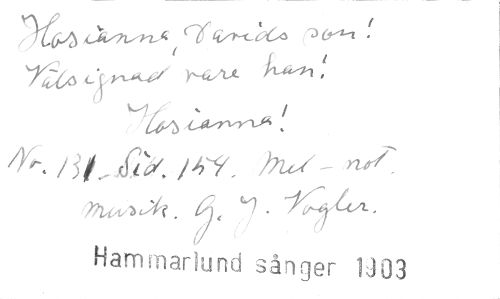 Hosianna, Davids son!
Välsignad vare han!
Hosianna!
No. 131. Sid. 154. Mel-not.
musik. G. J. Vogler.
Hammarlund sånger 1903